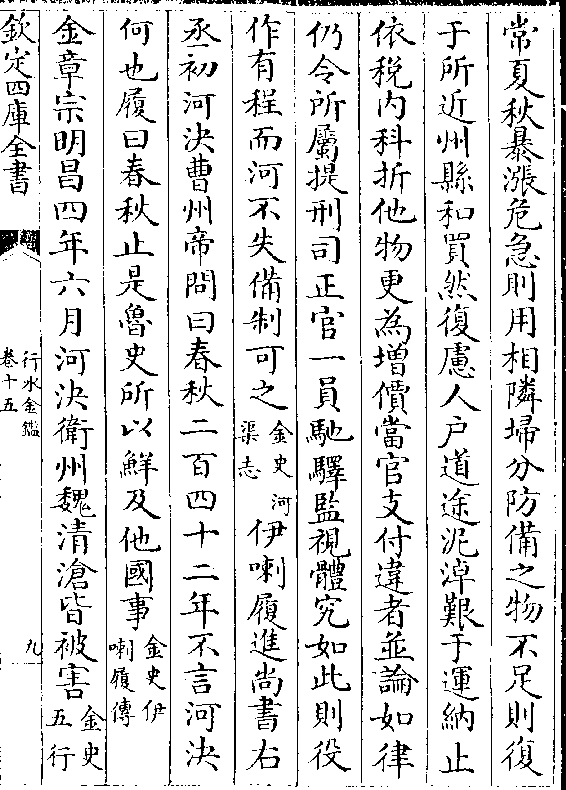 常夏秋暴漲危急則用相隣埽分防備之物不足則復
于所近州縣和買然復慮人户道途泥淖艱于運納止
依税内科折他物更為增價當官支付違者並論如律
仍令所屬提刑司正官一員馳驛監視體究如此則役
作有程而河不失備制可之金史河渠志伊喇履進尚書右
丞初河決曹州帝問曰春秋二百四十二年不言河決
何也履曰春秋止是魯史所以鮮及他國事金史伊喇履傳
金章宗明昌四年六月河決衛州魏清滄皆被害金史五行
欽定四庫全書
行水金鑑
卷十五
九